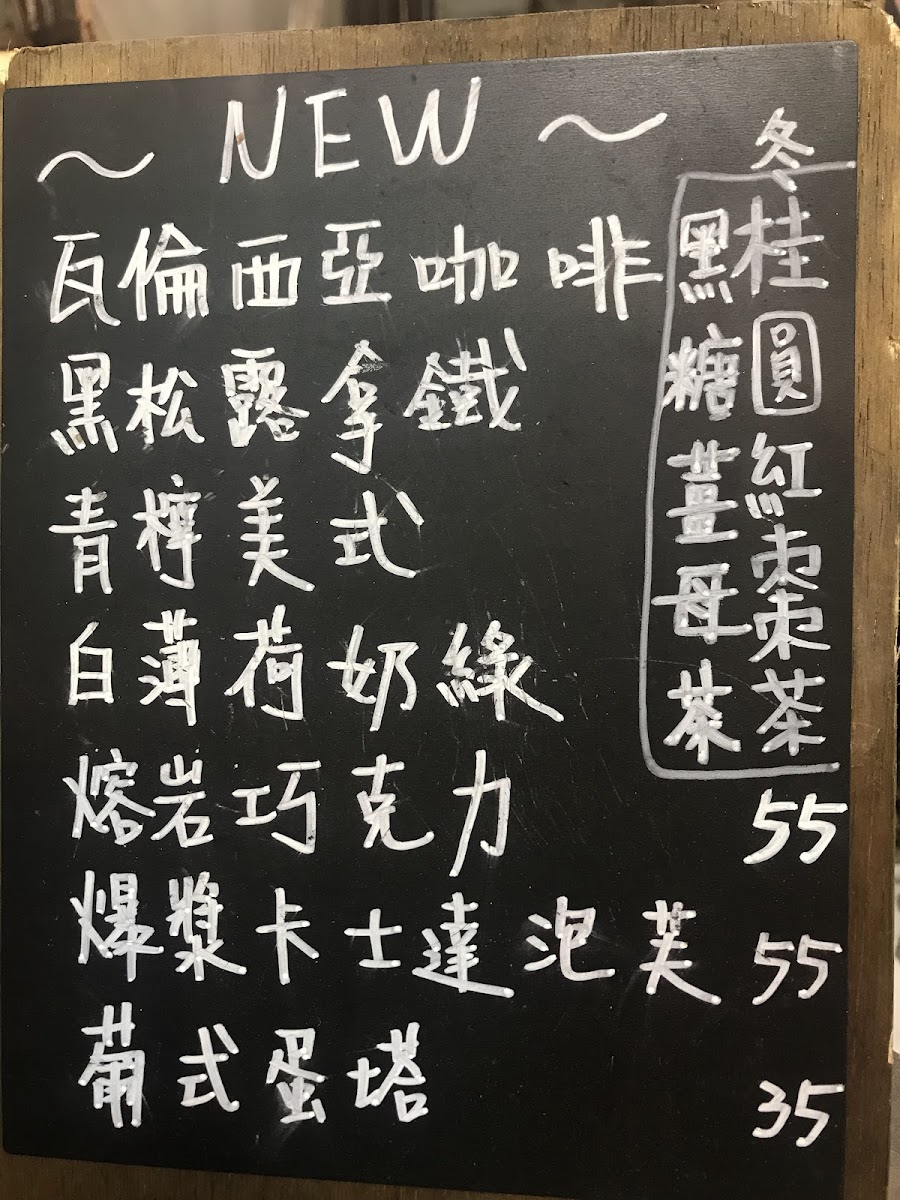 ～ NEW ～
瓦倫西亞咖啡
黑松露拿鐵
青檸美式
白薄荷奶綠
熔岩巧克力 55
爆漿卡士達泡芙 55
葡式蛋塔 35
冬
桂圓紅棗茶
黑糖薑母茶